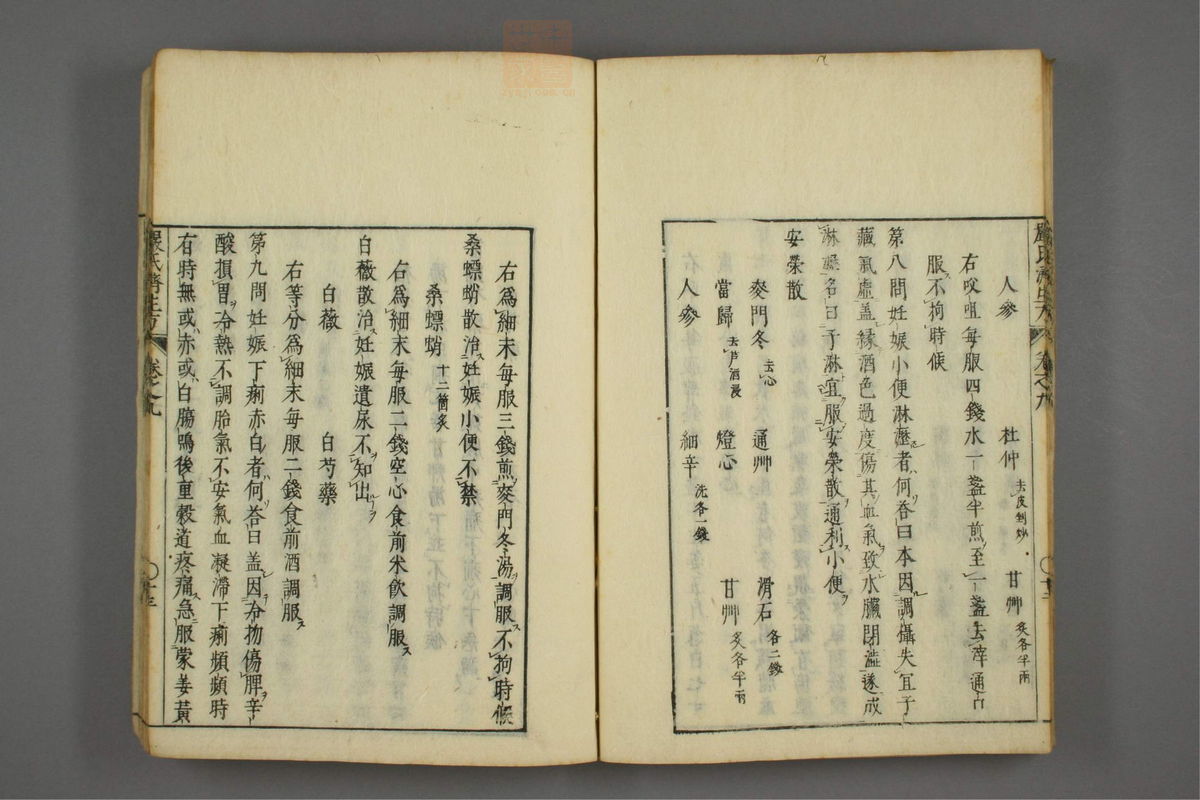 人參　杜仲去皮剉炒　甘艸炙各半兩
右㕮咀每服四錢水一盞半煎至一盞去滓通口
服不拘時候
第八問妊娠小便淋瀝者何荅曰本因調攝失宜子
藏氣虛盖緣酒色過度傷其血氣致水臟閉澁遂成
淋瀝名曰子淋宜服安榮散通利小便
安榮散
麥門冬去心　通艸　滑石各二錢
當歸去芦酒浸　燈心　甘艸炙各半兩
人參　細辛洗各一錢
右爲細末每服三錢煎麥門冬湯調服不拘時候
桑螵蛸散治妊娠小便不禁
桑螵蛸十二箇炙
右爲細末每服二錢空心食前米飲調服
白薇散治妊娠遺尿不知出
白薇　白芍藥
右等分爲細末每服二錢食前酒調服
第九問妊娠下痢赤白者何荅曰盖因冷物傷脾辛
酸損胃冷熱不調胎氣不安氣血凝滯下痢頻頻時
有時無或赤或白腸鳴後重穀道疼痛急服蒙姜黃
嚴氏濟生方　卷之九